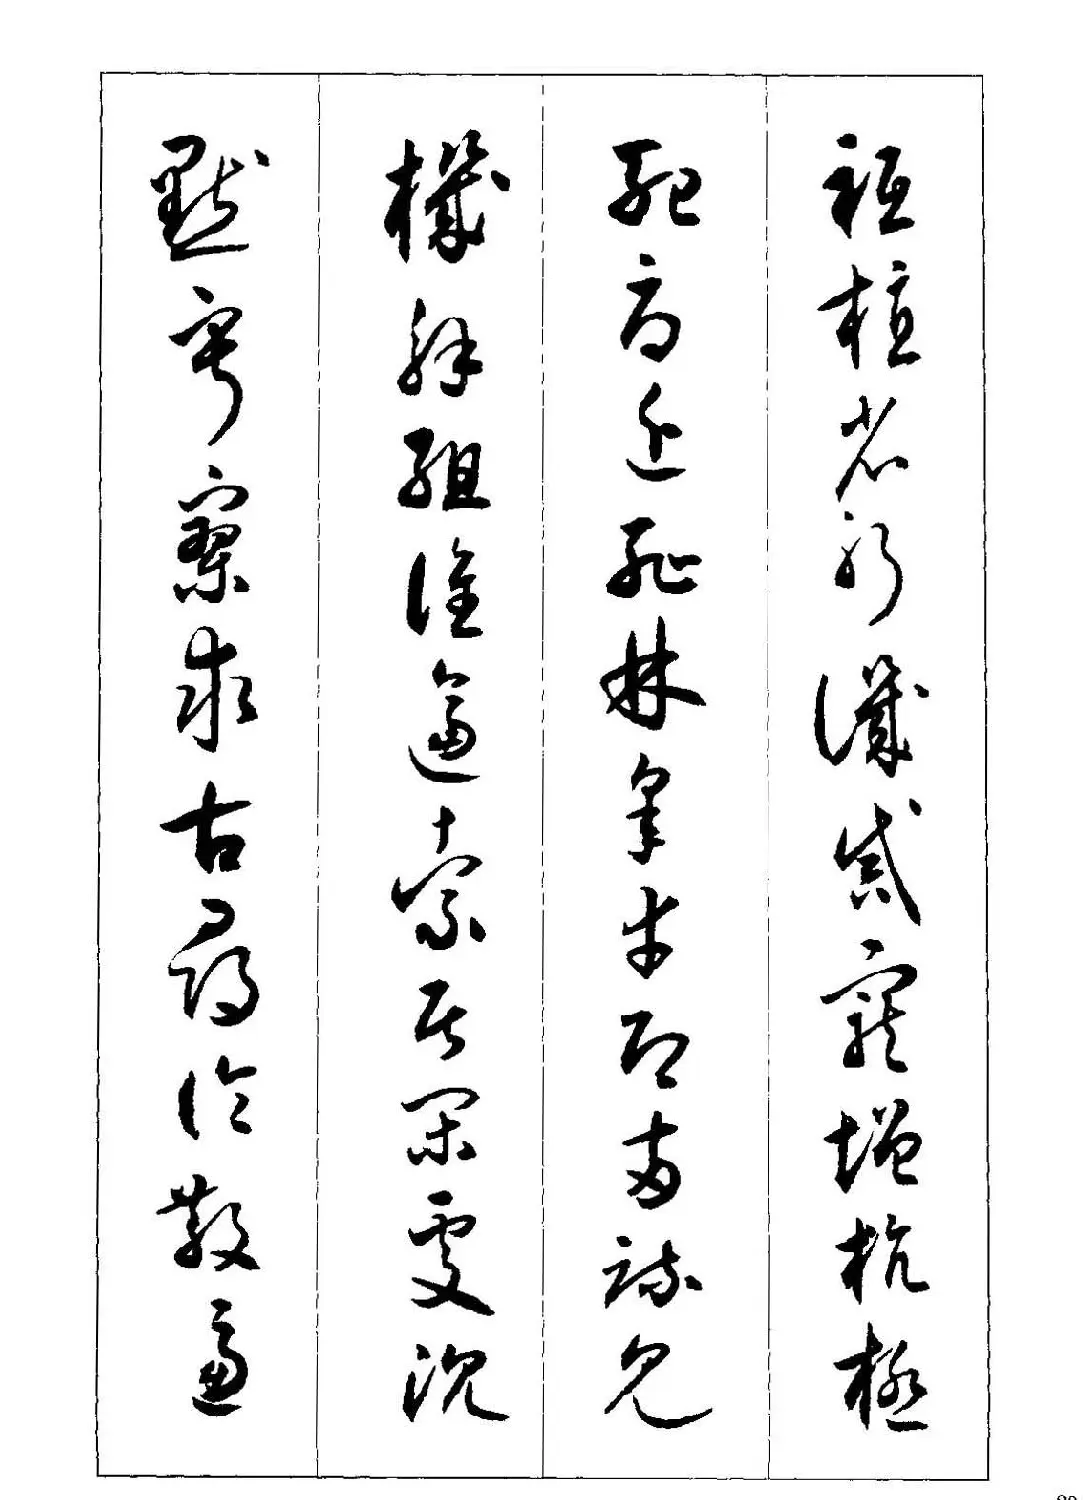 祗植省躬譏誡寵增抗極
殆辱近恥林皋幸即兩疏見
機解組誰逼索居閑處沉
默寂寥求古尋論散慮